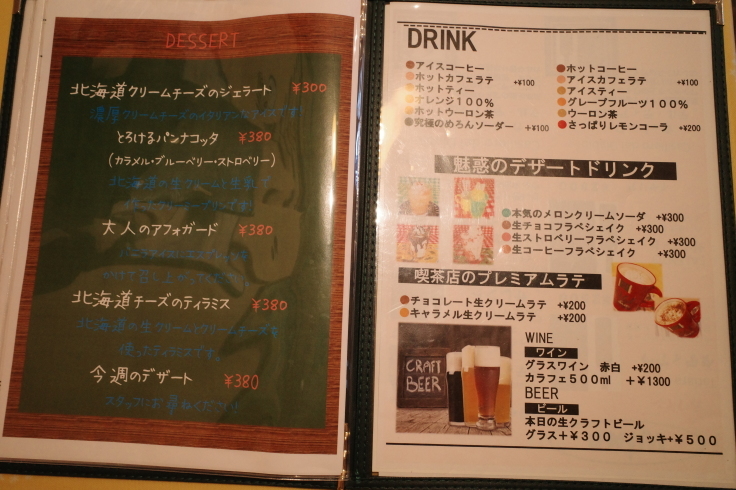 DESSERT
北海道クリームチーズのジェラート ¥300
濃厚クリームチーズのイタリアンなアイスです!
とろけるパンナコッタ ¥380
(カラメル・ブルーベリー・ストロベリー)
北海道の生クリームと生乳で
大人のアフォガード ¥380
バニラアイスにエスプレッソを
かけて召し上がってください
北海道チーズのティラミス ¥380
北海道の生クリームとクリームチーズを
使ったティラミスです。
今週のデザート ¥380
スタッフにお尋ねください!
DRINK
アイスコーヒー
ホットカフェラテ +¥100
ホットティー
オレンジ100%
ホットウーロン茶
究極のめろんソーダー +¥100
ホットコーヒー
アイスカフェラテ +¥100
アイスティー
グレープフルーツ100%
ウーロン茶
さっぱりレモンコーラ +¥200
魅惑のデザートドリンク
本気のメロンクリームソーダ +¥300
生チョコフラペシェイク +¥300
生ストロベリーフラペシェイク +¥300
生コーヒーフラペシェイク +¥300
喫茶店のプレミアムラテ
チョコレート生クリームラテ +¥200
キャラメル生クリームラテ +¥200
CRAFT
BEER
WINE
ワイン
グラスワイン 赤白 +¥200
カラフェ500ml +¥1300
BEER
ビール
本日の生クラフトビール
グラス+¥300 ジョッキ+¥500